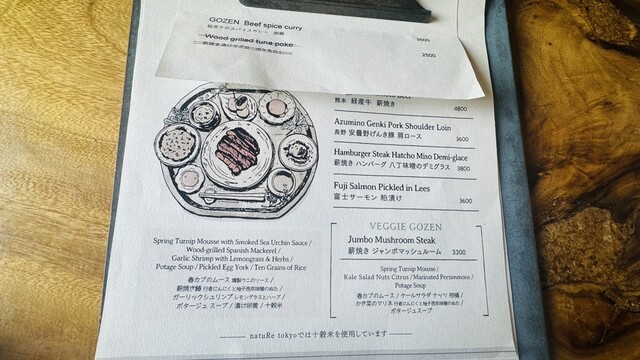 GOZEN Beef spice curry
Wood grilled tuna poke
2500
熊本 経産牛 薪焼き
4800
Azumino Genki Pork Shoulder Loin
長野 安曇野げんき豚 肩ロース
3600
Hamburger Steak Hatcho Miso Demi-glace
薪焼き ハンバーグ 八丁味噌のデミグラス 3800
Fuji Salmon Pickled in Lees
富士サーモン 粕漬け
3600
VEGGIE GOZEN
Jumbo Mushroom Steak
薪焼き ジャンボマッシュルーム 3300
Spring Turnip Mousse /
Kale Salad Nuts Citrus / Marinated Persimmons /
Potage Soup
春カブのムース / ケールサラダ ナッツ 柑橘 /
ポタージュスープ
Spring Turnip Mousse with Smoked Sea Urchin Sauce /
Wood-grilled Spanish Mackerel /
Garlic Shrimp with Lemongrass & Herbs /
Potage Soup / Pickled Egg York / Ten Grains of Rice
春カブのムース 燻製ウニのソース /
薪焼き鰆 行者にんにくと柚子西京味噌のぬた /
ガーリックシュリンプ レモングラスとハーブ /
ポタージュ スープ / 漬け卵黄 / 十穀米
natuRe tokyoでは十穀米を使用しています